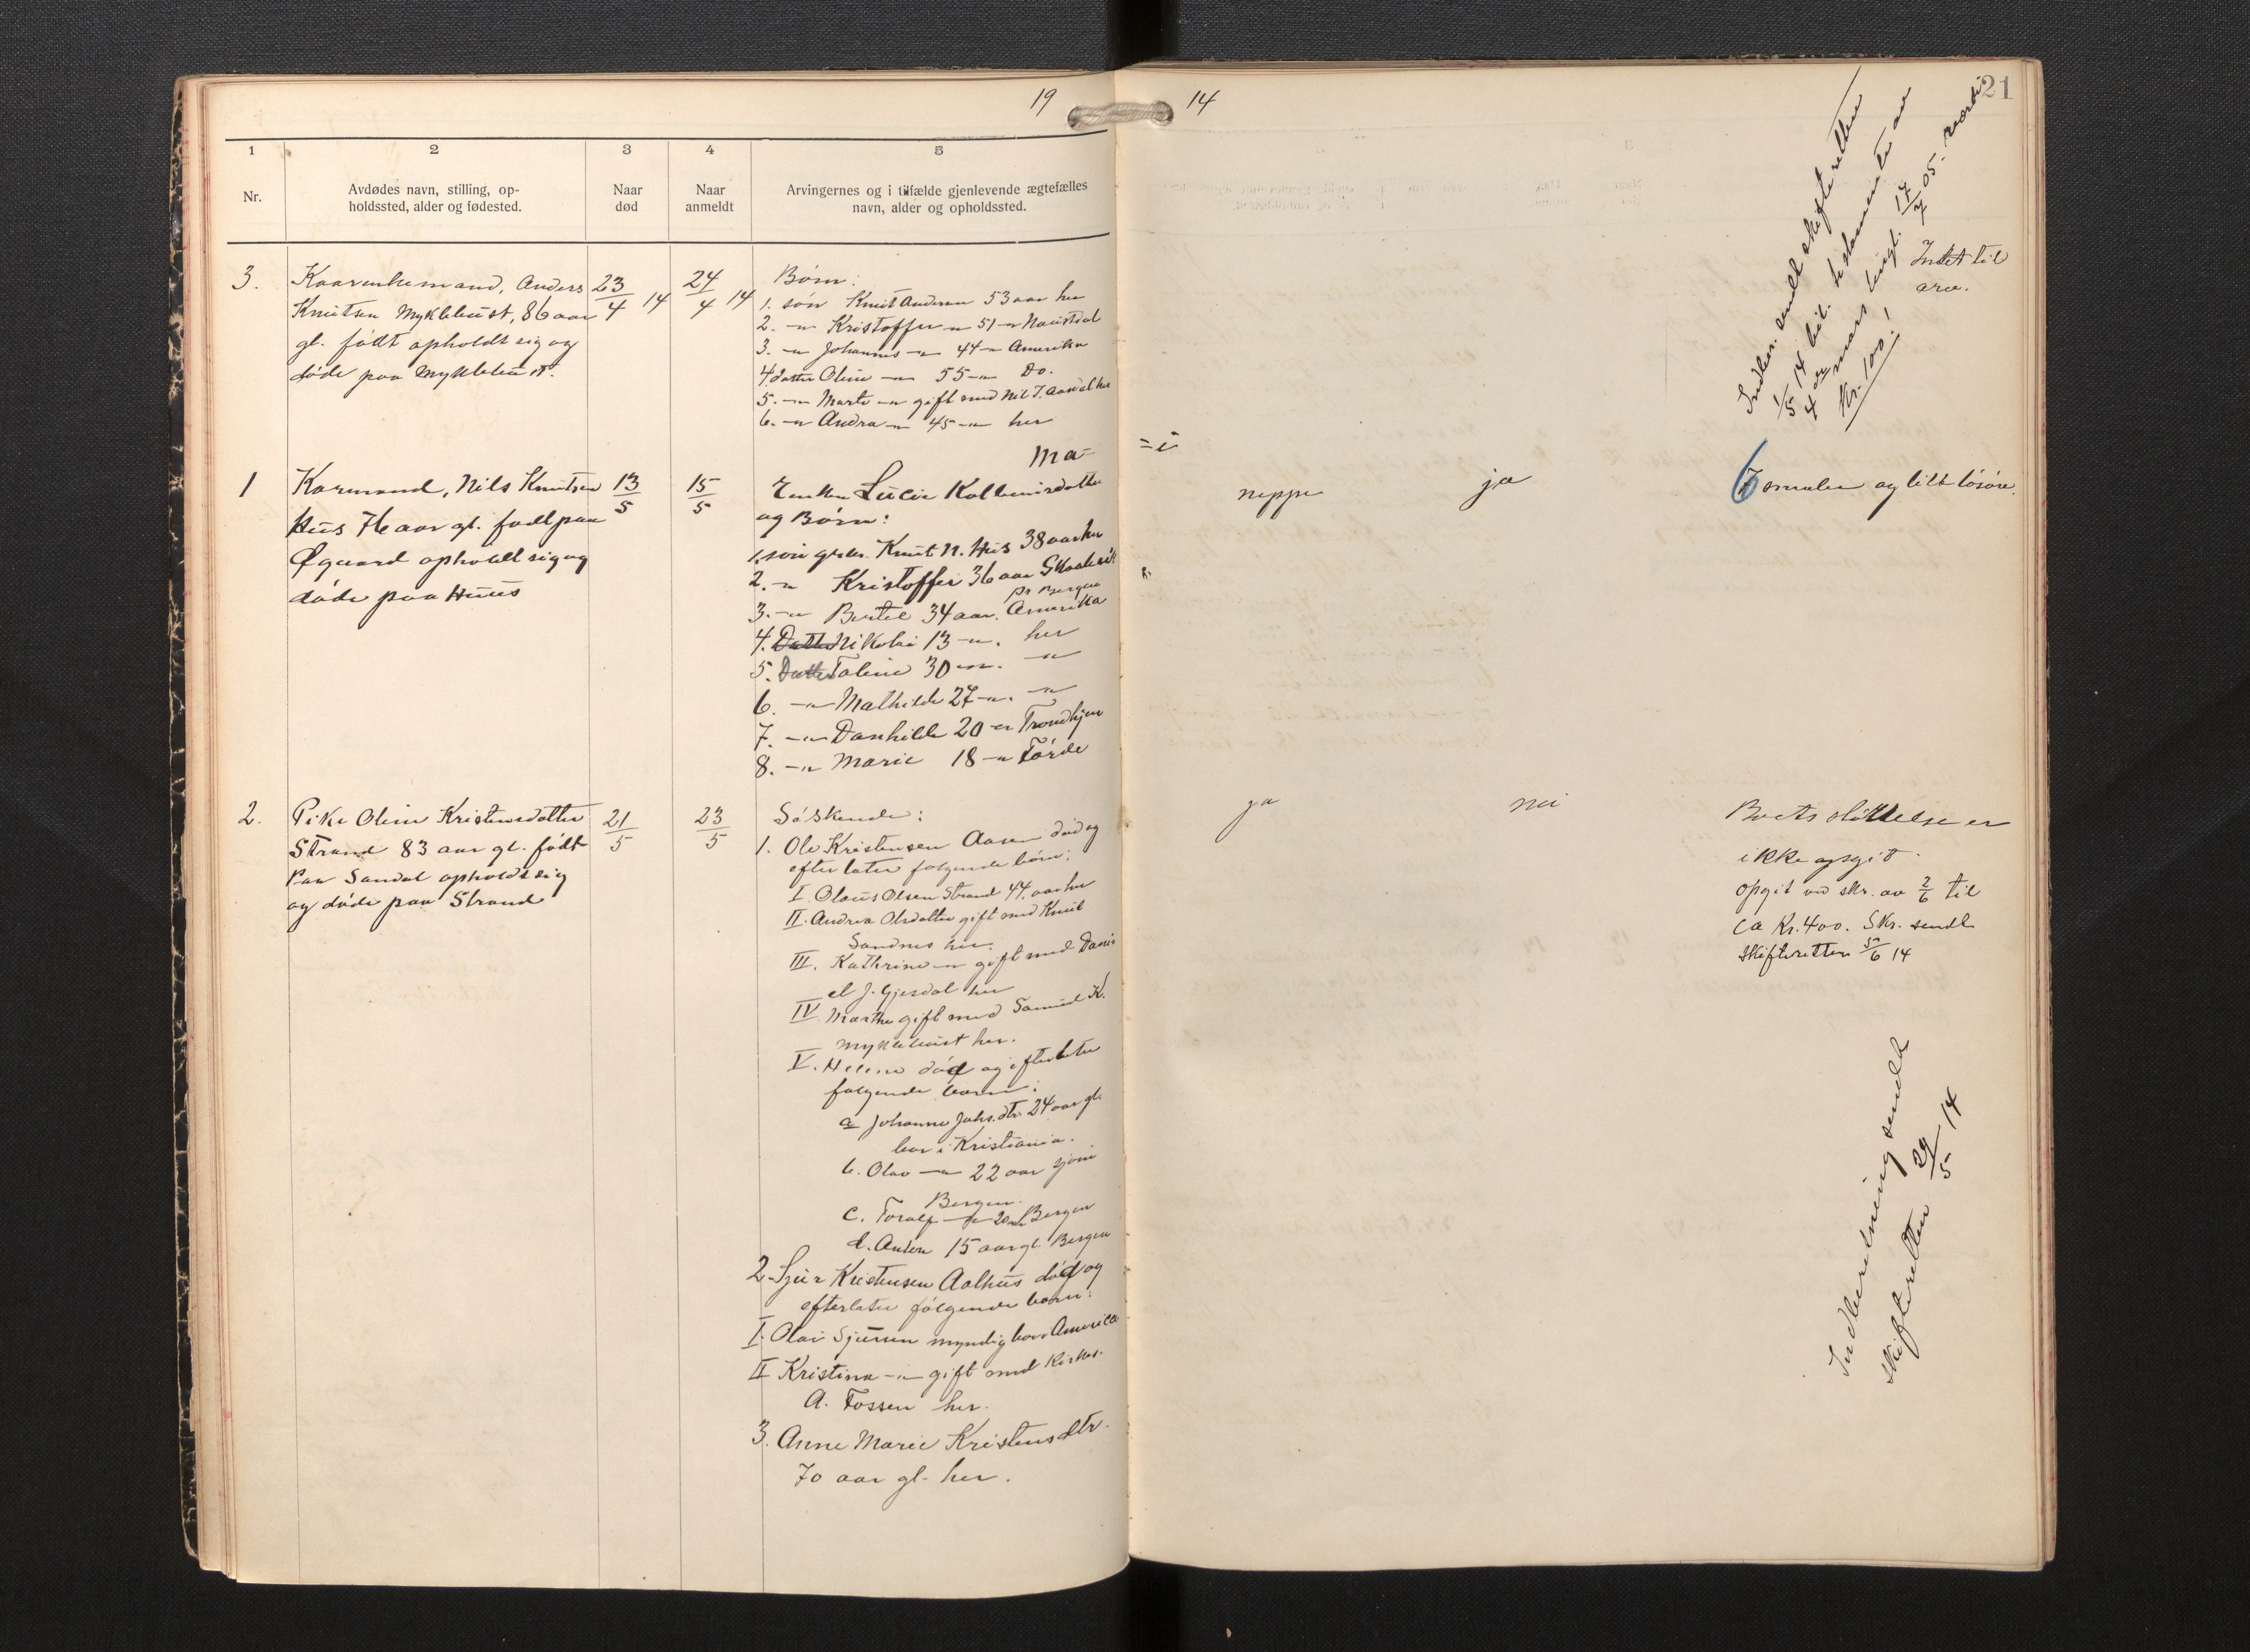 19
14
21
1
2
3
4
5
Nr.
Avdødes navn, stilling, op-
holdssted, alder og fødested.
Naar
død
Naar
anmeldt
Arvingernes og i tilfælde gjenlevende ægtefælles
navn, alder og opholdssted.
3.
Kaarenkemand, Anders
Knutsen Myklebust, 86 aar
gl. født opholdt sig og
døde paa Myklebust.
23/4 14
24/4 14
Børn:
1. søn Knut Andersen 53 aar her
2. -"- Kristoffer -"- 51 -"- Naustdal
3. -"- Johannes -"- 44 -"- Amerika
4. datter Oline -"- 55 -"- Do.
5. -"- Marte -"- gift med Nils J. Aasdal her
6. -"- Andra -"- 45 -"- her
Indber. sendt skifteretten
1/5 14 bil. testamente av
4 mars tingl. 17/7 05.
Kr. 100!
Intet til
arv.
Ma-
=i
1
Karmand, Nils Knutsen
Hus 76 aar gl. født paa
Øgaard opholdt sig og
døde paa Huus
13/5
15/5
Enken Lucie
og Børn:
1. søn Knut N. Hus 38 aar her
2. -"- Kristoffer 36 aar
pr Bergen
3. -"- Bertel 34 aar. Amerika
4. Nikolai 13 -"-. her
5. Datter Taline 30 -"-. -"-
6. -"- Mathilde 27 -"-. -"-
7. -"- Danhilde 20 -"- Trondhjem
8. -"- Marie 18 -"- Førde
neppe
ja
6 smaler og litt løsøre.
2.
Pike Oline Kristensdatter
Strand 83 aar gl. født
paa Sandal opholdt sig
og døde paa Strand
21/5
23/5
Søskende:
1. Ole Kristensen Aasen død og
efterlater følgende børn:
I. Olaus Olsen Strand 44 aar her
II. Andrea Olsdatter gift med Knut
Sandnes her.
III. Kathrine -"- gift med Dani-
el J. Gjesdal her
IV. Marthe gift med Samuel K.
Myklebust her.
V. Helene død og efterlater
følgende børn:
a Johanne Johs.dtr. 24 aar gl.
bor i Kristiania.
b. Olav -"- 22 aar
Bergen.
c. Toralf -"- 20 -"- Bergen
d. Anton 15 aar gl. Bergen
2. Sjur Kristensen Aalhus død og
efterlater følgende børn:
I. Olai Sjursen myndig bor i America
II Kristina -"- gift med
A. Fossen her.
3. Anne Marie Kristensdtr.
70 aar gl. her.
ja
nei
Boets størrelse er
ikke opgit.
opgit ved skr. av 2/6 til
ca Kr. 400. Skr. sendt
skifteretten 5/6 14
Indberetning sendt
skifteretten 29/5 14